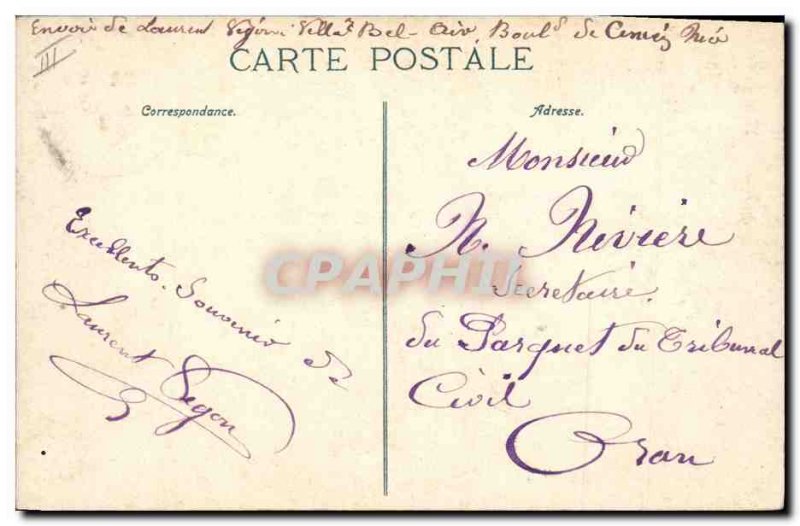 Envoi de Laurent Ségon Villa Bel-Air, Boul.d de Cimiez Nice
III
CARTE POSTALE
Correspondance.
Adresse.
Excellents Souvenir de
Laurent Segon
Monsieur
N. Rivière
Secretaire
du Parquet du Tribunal
Civil
Oran
CPAPHIL